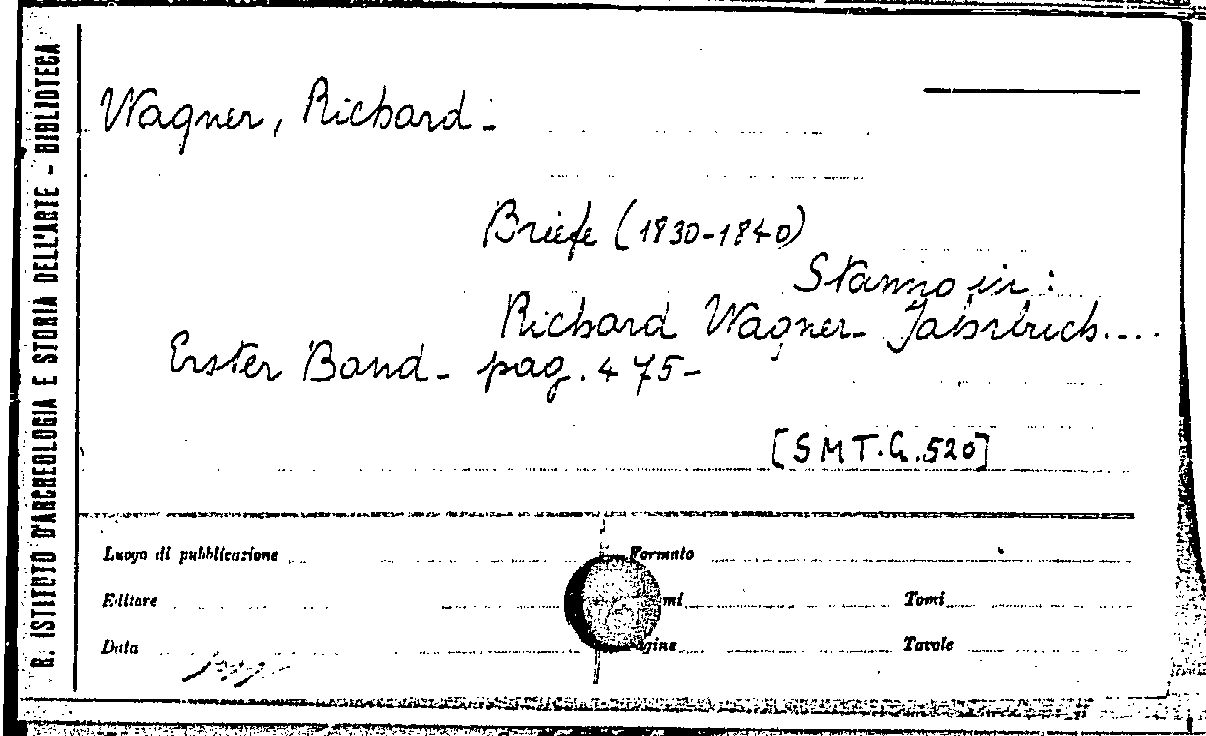 R. ISTITUTO D'ARCHEOLOGIA E STORIA DELL'ARTE - BIBLIOTECA
Wagner, Richard -
Briefe (1830-1840)
Stanno in:
Richard Wagner - Jahrbuch....
Erster Band - pag. 475 -
[SMT.G.520]
Luogo di pubblicazione
Formato
Editore
mi
Tomi
Data
agine
Tavole